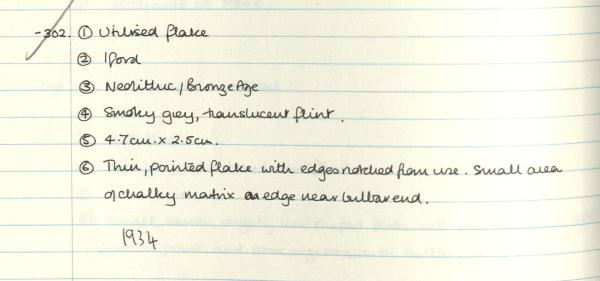 -302. ① Utilised flake
② Iford
③ Neolithic/Bronze Age
④ Smoky grey, translucent flint.
⑤ 4.7cm. x 2.5cm.
⑥ Thin, pointed flake with edges notched from use. Small area
of chalky matrix on edge near bulbar end.
1934